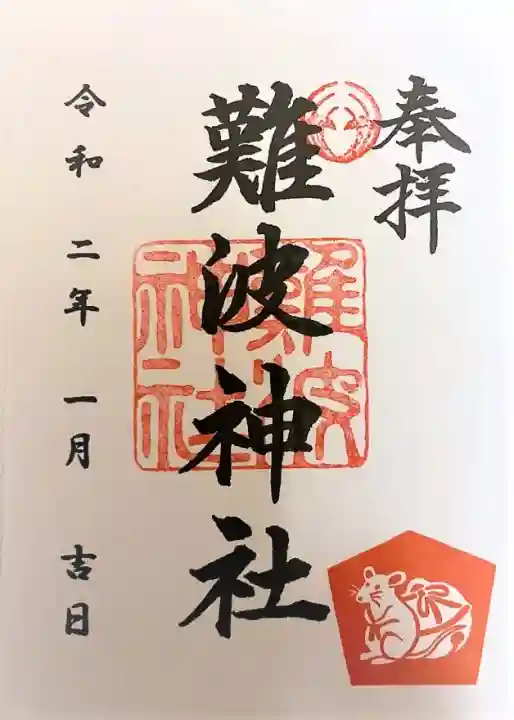 奉拝
難波神社
難波
神社
令和 二年 一月 吉日